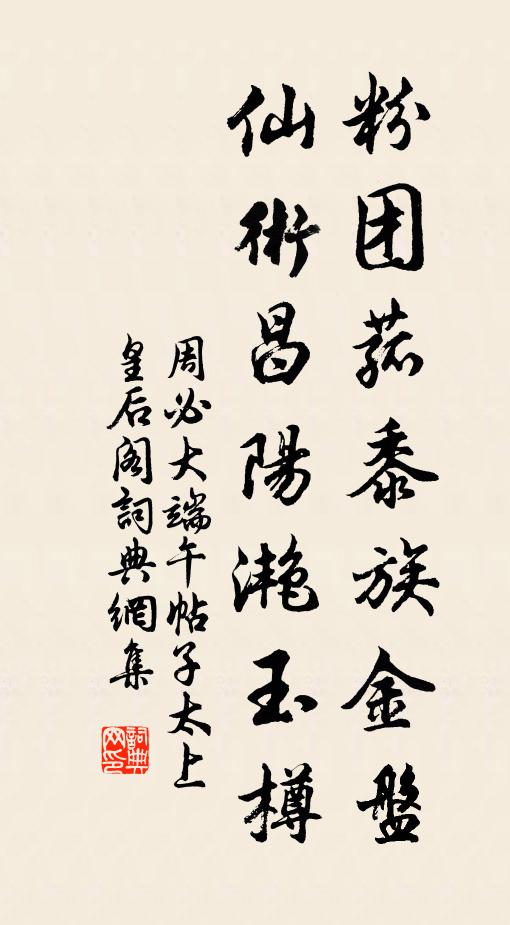 粉团菰黍族金盤
仙術昌陽灔玉樽
周必大端午帖子太上
皇后阁詞典網集
詞典網印